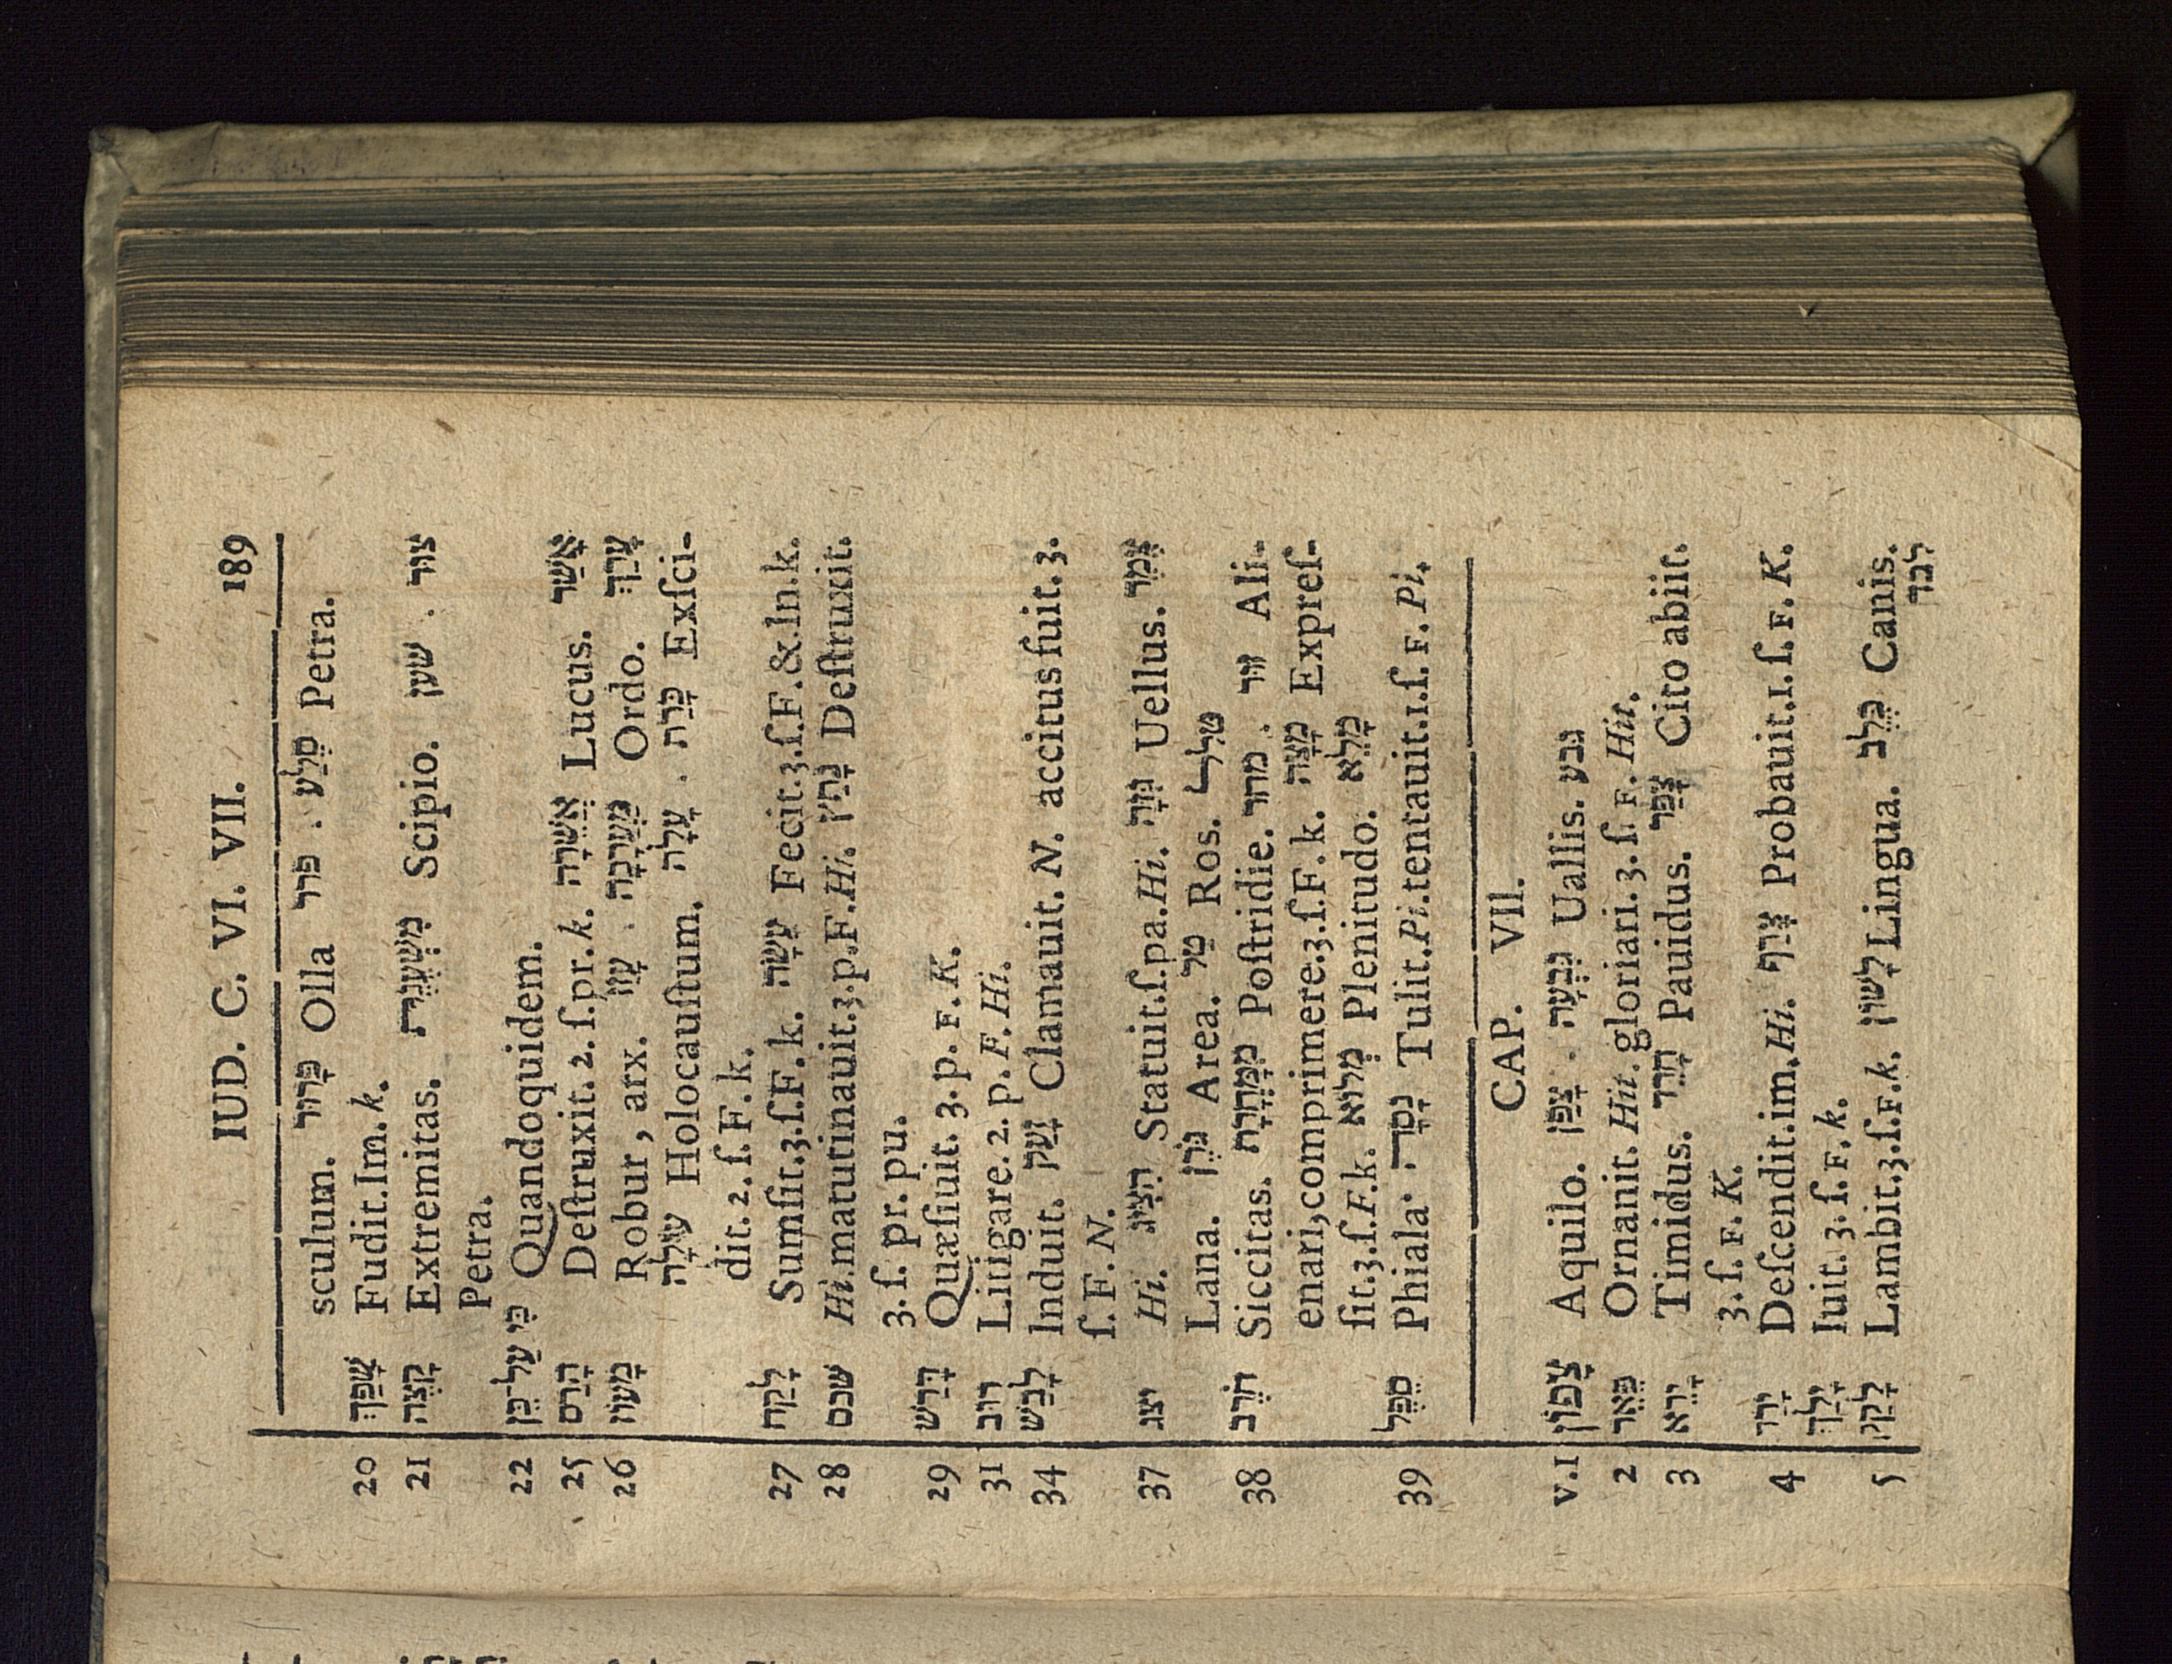 IUD. C. VI. VII. 189
sculum. פָּרוּר Olla פרר . סֶלַע Petra.
20 שָׁפַךְ Fudit.Im.k.
21 קָצֶה Extremitas. מִשְׁעֶנֶת Scipio. שען . צוּר
Petra.
22 כִּי עַל־כֵּן Quandoquidem.
25 הָרַס Deſtruxit. 2. ſ.pr.k. אֲשֵׁרָה Lucus. אָשַׁר
26 מָעוֹז Robur, arx. עָזַז . מַעֲרָכָה Ordo. עָרַךְ
עוֹלָה Holocauſtum. עָלָה . כָּרַת Exſci-
dit. 2. ſ. F. k.
27 לָקַח Sumſit.3.ſ.F. k. עָשָׂה Fecit.3.ſ.F.&.In.k.
28 שכם Hi.matutinauit.3.p.F.Hi. נָתַץ Deſtruxit.
3. ſ. pr. pu.
29 דָּרַשׁ Quæſiuit. 3. p. F. K.
31 רוּב Litigare. 2. p. F. Hi.
34 לָבַשׁ Induit. זָעַק Clamauit. N. accitus fuit. 3.
ſ. F. N.
37 יצג Hi. הִצִּיג Statuit.ſ.pa.Hi. גִּזָּה Uellus. צֶמֶר
Lana. גֹּרֶן Area. טַל Ros. טלל
38 חֹרֶב Siccitas. מִמָּחֳרָת Poſtridie. מחר . זוּר Ali-
enari,comprimere.3.ſ.F. k. מָצָה Expreſ-
ſit.3.ſ.F.k. מְלוֹא Plenitudo. מָלֵא
39 סֵפֶל Phiala. נִסָּה Tulit.Pi.tentauit.1.ſ. F. Pi.
CAP. VII.
v.1 צָפוֹן Aquilo. צָפַן . גִּבְעָה Uallis. גבע
2 פֵּאֵר Ornanit. Hit. gloriari. 3. ſ. F. Hit.
3 יָרֵא Timidus. חָרֵד Pauidus. צָפַר Cito abiit.
3. ſ. F. K.
4 יָרַד Deſcendit.im.Hi. צָרַף Probauit.1.ſ. F. K.
יָלַךְ Iuit. 3. ſ. F. k.
5 לָקַק Lambit.3.ſ.F.k. לָשׁוֹן Lingua. כֶּלֶב Canis.
לבד